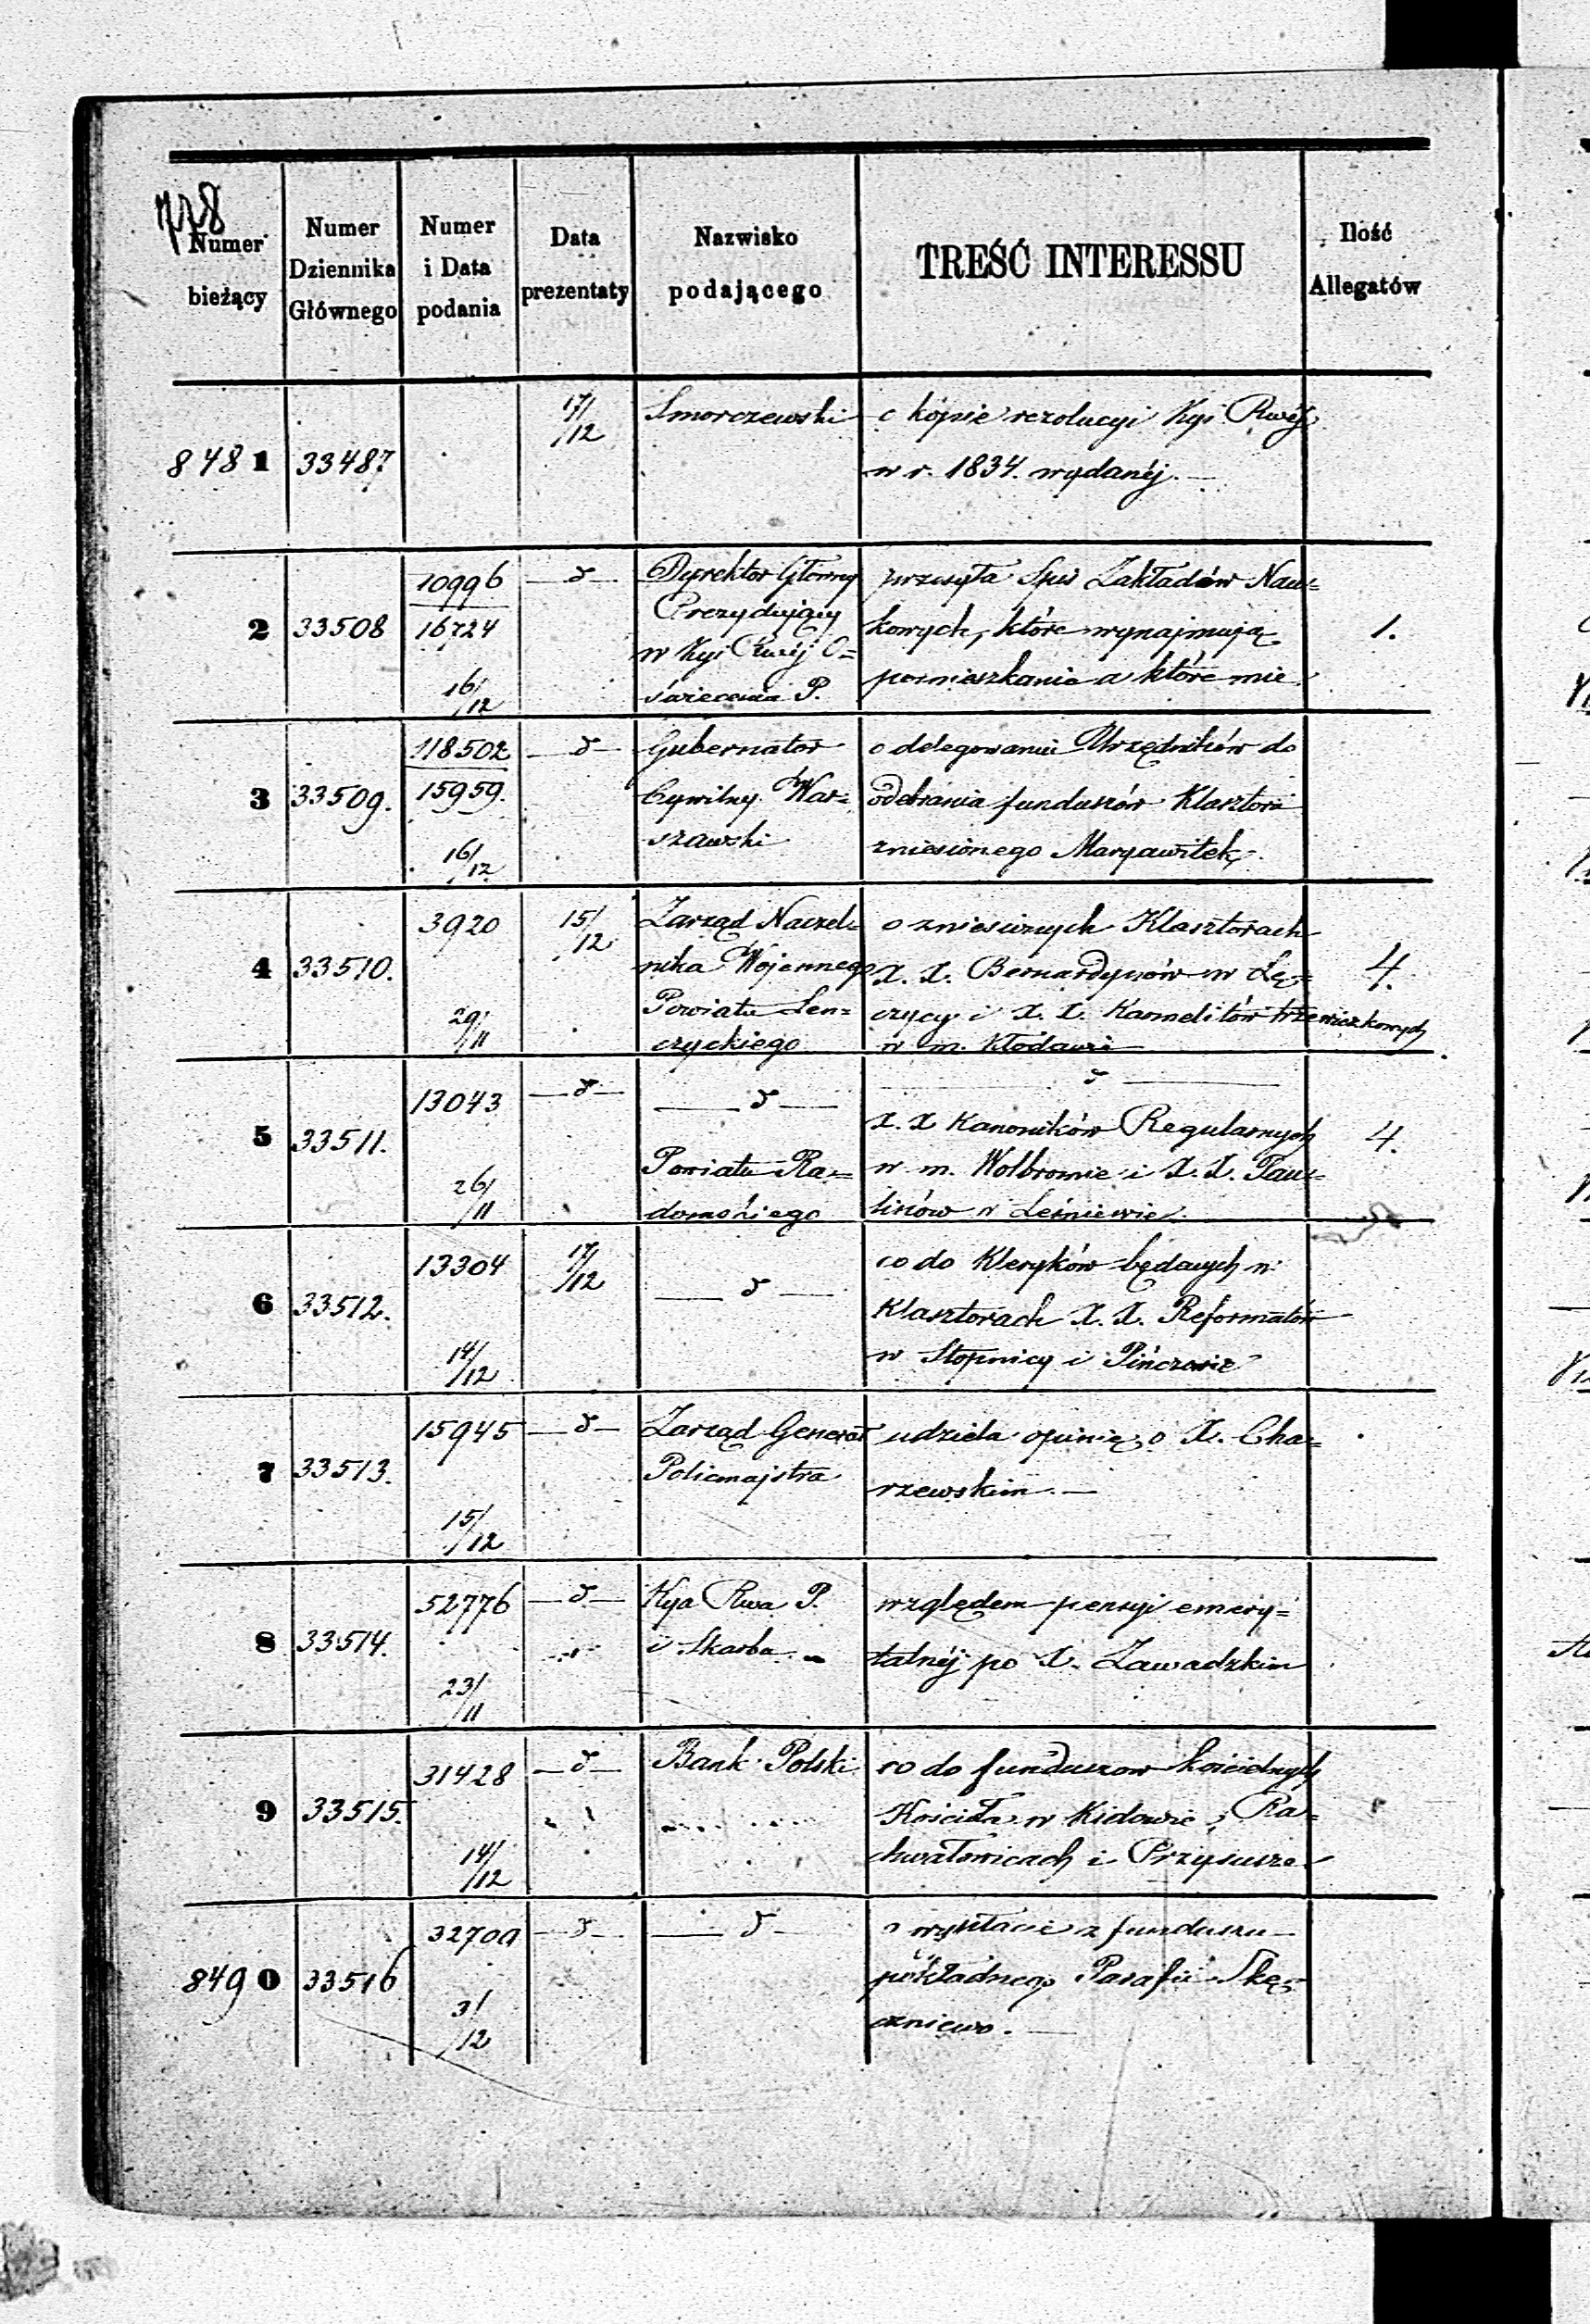 778
Numer bieżący
Numer Dziennika Głównego
Numer i Data podania
Data prezentaty
Nazwisko podającego
TREŚĆ INTERESSU
Ilość Allegatów
8481 33487 17/12 Smorczewski o kópie rezolucyi Kyi Rwéj
w r. 1834. wydanéj. —
2 33508 10996 — d — Dyrektor Główny przesyła Spis Zakładów Nau= 1.
16724 Prezydujący kowych, które wynajmują
16/12 w Kyi Rwéj O= pomieszkania a które nie
świecenia P.
3 33509. 118502 — d — Gubernator o delegowaniu Urzędników do
15959. Cywilny War= odebrania funduszów Klasztoru
16/12 szawski zniesionego Maryawitek.
4 33510. 3920 15/12 Zarząd Naczel= o zniesionych Klasztorach 4.
29/11 nika Wojennego X. X. Bernardynów w Łę=
Powiatu Len= czycy i X. X. Karmelitów trzewiczkowych
czyckiego w m. Kłodawie
5 33511. 13043 — d — — d — — d — 4.
26/11 X. X Kanoników Regularnych
Powiatu Ra= w m. Wolbromie i X. X. Pau=
domskiego linów w Leśniewie.
6 33512. 13304 17/12 — d — co do Kleryków będących w
14/12 Klasztorach X. X. Reformatów
w Stopnicy i Pińczowie
7 33513. 15945 — d — Zarząd Generał udziela opinię o X. Cha=
15/12 Policmajstra rzewskim. —
8 33514. 52776 — d — Kya Rwa P. względem pensyi emery=
23/11 i Skarbu talnéj po X. Zawadzkim
9 33515. 31428 — d — Bank Polski co do funduszow kościelnych
14/12 Kościoła w Kidowie, Ra=
chwałowicach i Przysusze
8490 33516 32700 — d — — d — o wypłacie z funduszu
3/12 pokładnego Parafii Skę=
czniewo. —